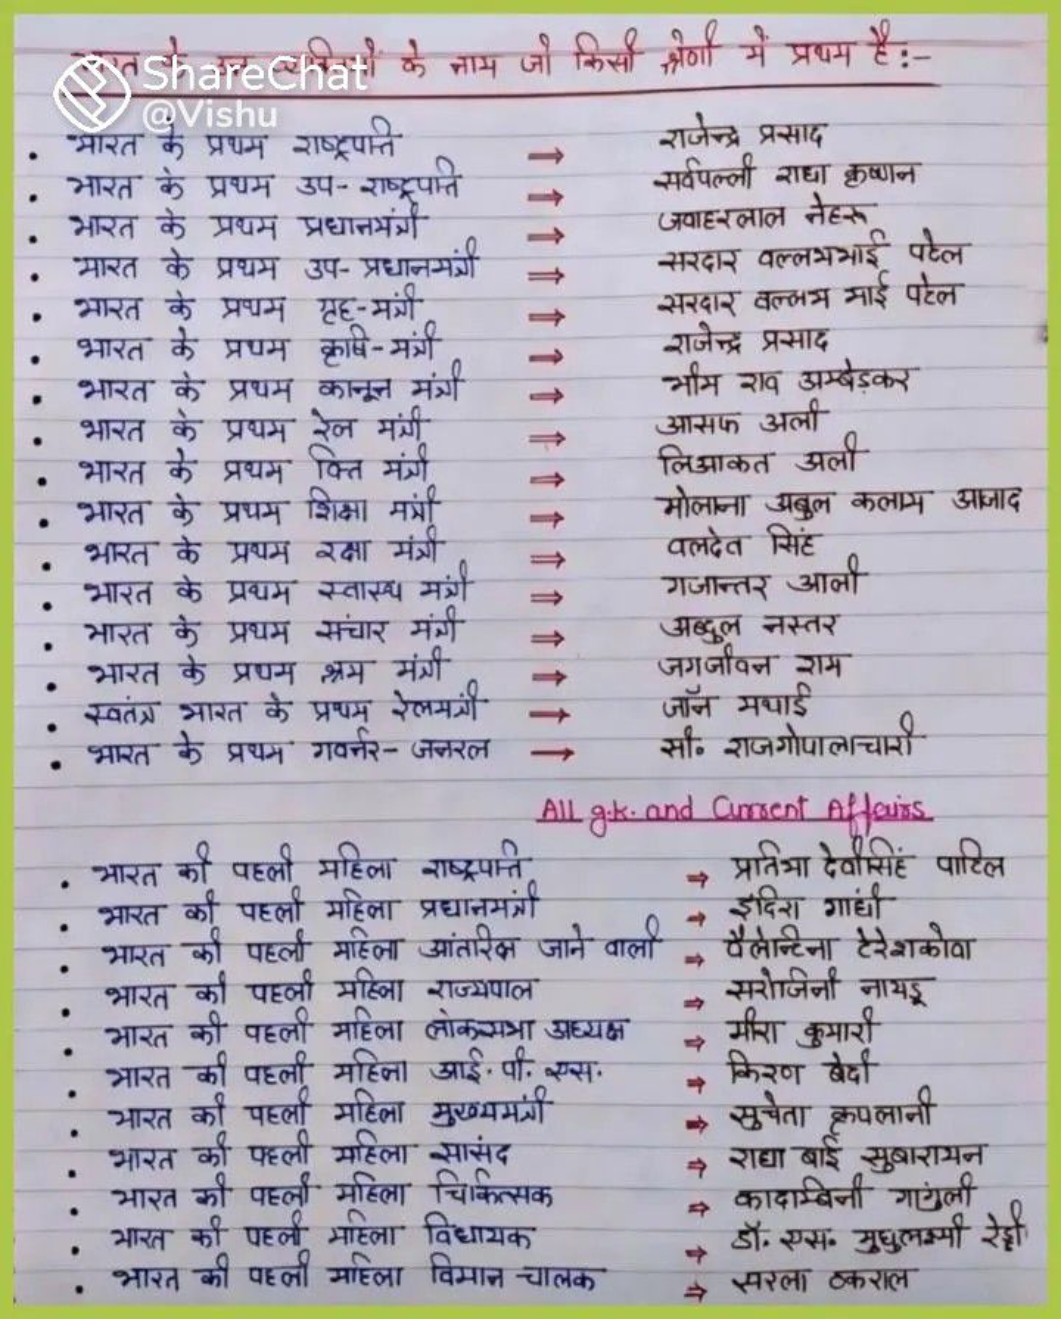 ShareChat
@Vishu
के नाम जो किसी श्रेणी में प्रथम है:-
भारत के प्रथम राष्ट्रपति ⇒ राजेन्द्र प्रसाद
भारत के प्रथम उप-राष्ट्रपति ⇒ सर्वपल्ली राधा कृष्णन
भारत के प्रथम प्रधानमंत्री ⇒ जवाहरलाल नेहरू
भारत के प्रथम उप-प्रधानमंत्री ⇒ सरदार वल्लभभाई पटेल
भारत के प्रथम गृह-मंत्री ⇒ सरदार वल्लभ भाई पटेल
भारत के प्रथम कृषि-मंत्री ⇒ राजेन्द्र प्रसाद
भारत के प्रथम कानून मंत्री ⇒ भीम राव अम्बेड़कर
भारत के प्रथम रेल मंत्री ⇒ आसफ अली
भारत के प्रथम वित्त मंत्री ⇒ लिआकत अली
भारत के प्रथम शिक्षा मंत्री ⇒ मोलाना अबुल कलाम आजाद
भारत के प्रथम रक्षा मंत्री ⇒ वलदेव सिंह
भारत के प्रथम स्वास्थ मंत्री ⇒ गजान्तर आली
भारत के प्रथम संचार मंत्री ⇒ अब्दुल नस्तर
भारत के प्रथम श्रम मंत्री ⇒ जगजीवन राम
स्वतंत्र भारत के प्रथम रेलमंत्री → जॉन मथाई
भारत के प्रथम गवर्नर-जनरल → सी. राजगोपालाचारी
All g.k. and Current Affairs
भारत की पहली महिला राष्ट्रपति ⇒ प्रतिभा देवीसिंह पाटिल
भारत की पहली महिला प्रधानमंत्री ⇒ इंदिरा गांधी
भारत की पहली महिला आंतरिक्ष जाने वाली ⇒ वैलेन्टिना टेरेशकोवा
भारत की पहली महिला राज्यपाल ⇒ सरोजिनी नायडू
भारत की पहली महिला लोकसभा अध्यक्ष ⇒ मीरा कुमारी
भारत की पहली महिला आई.पी.एस. ⇒ किरण बेदी
भारत की पहली महिला मुख्यमंत्री ⇒ सुचेता कृपलानी
भारत की पहली महिला सासंद ⇒ राधा बाई सुबारायन
भारत की पहली महिला चिकित्सक ⇒ कादाम्बिनी गांगुली
भारत की पहली महिला विधायक ⇒ डॉ. एस. मुथुलक्ष्मी रेड्डी
भारत की पहली महिला विमान चालक ⇒ सरला ठकराल